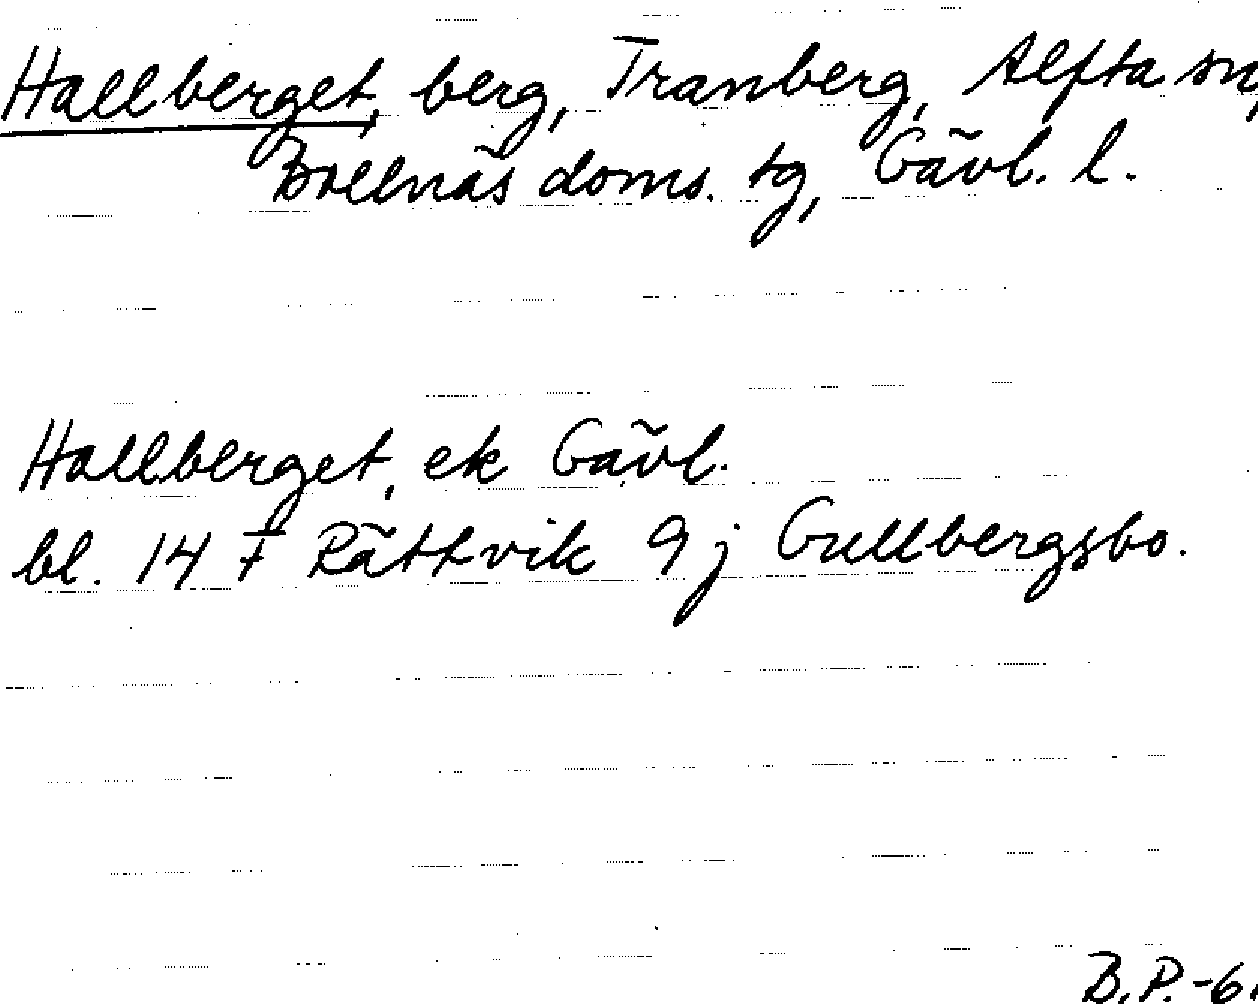 Hallberget, berg, Tranberg, Alfta sn,
Bollnäs doms. tg, Gävl. l.
Hallberget, ek Gävl.
bl. 14 F Rättvik 9j Gullbergsbo.
B.P.-6